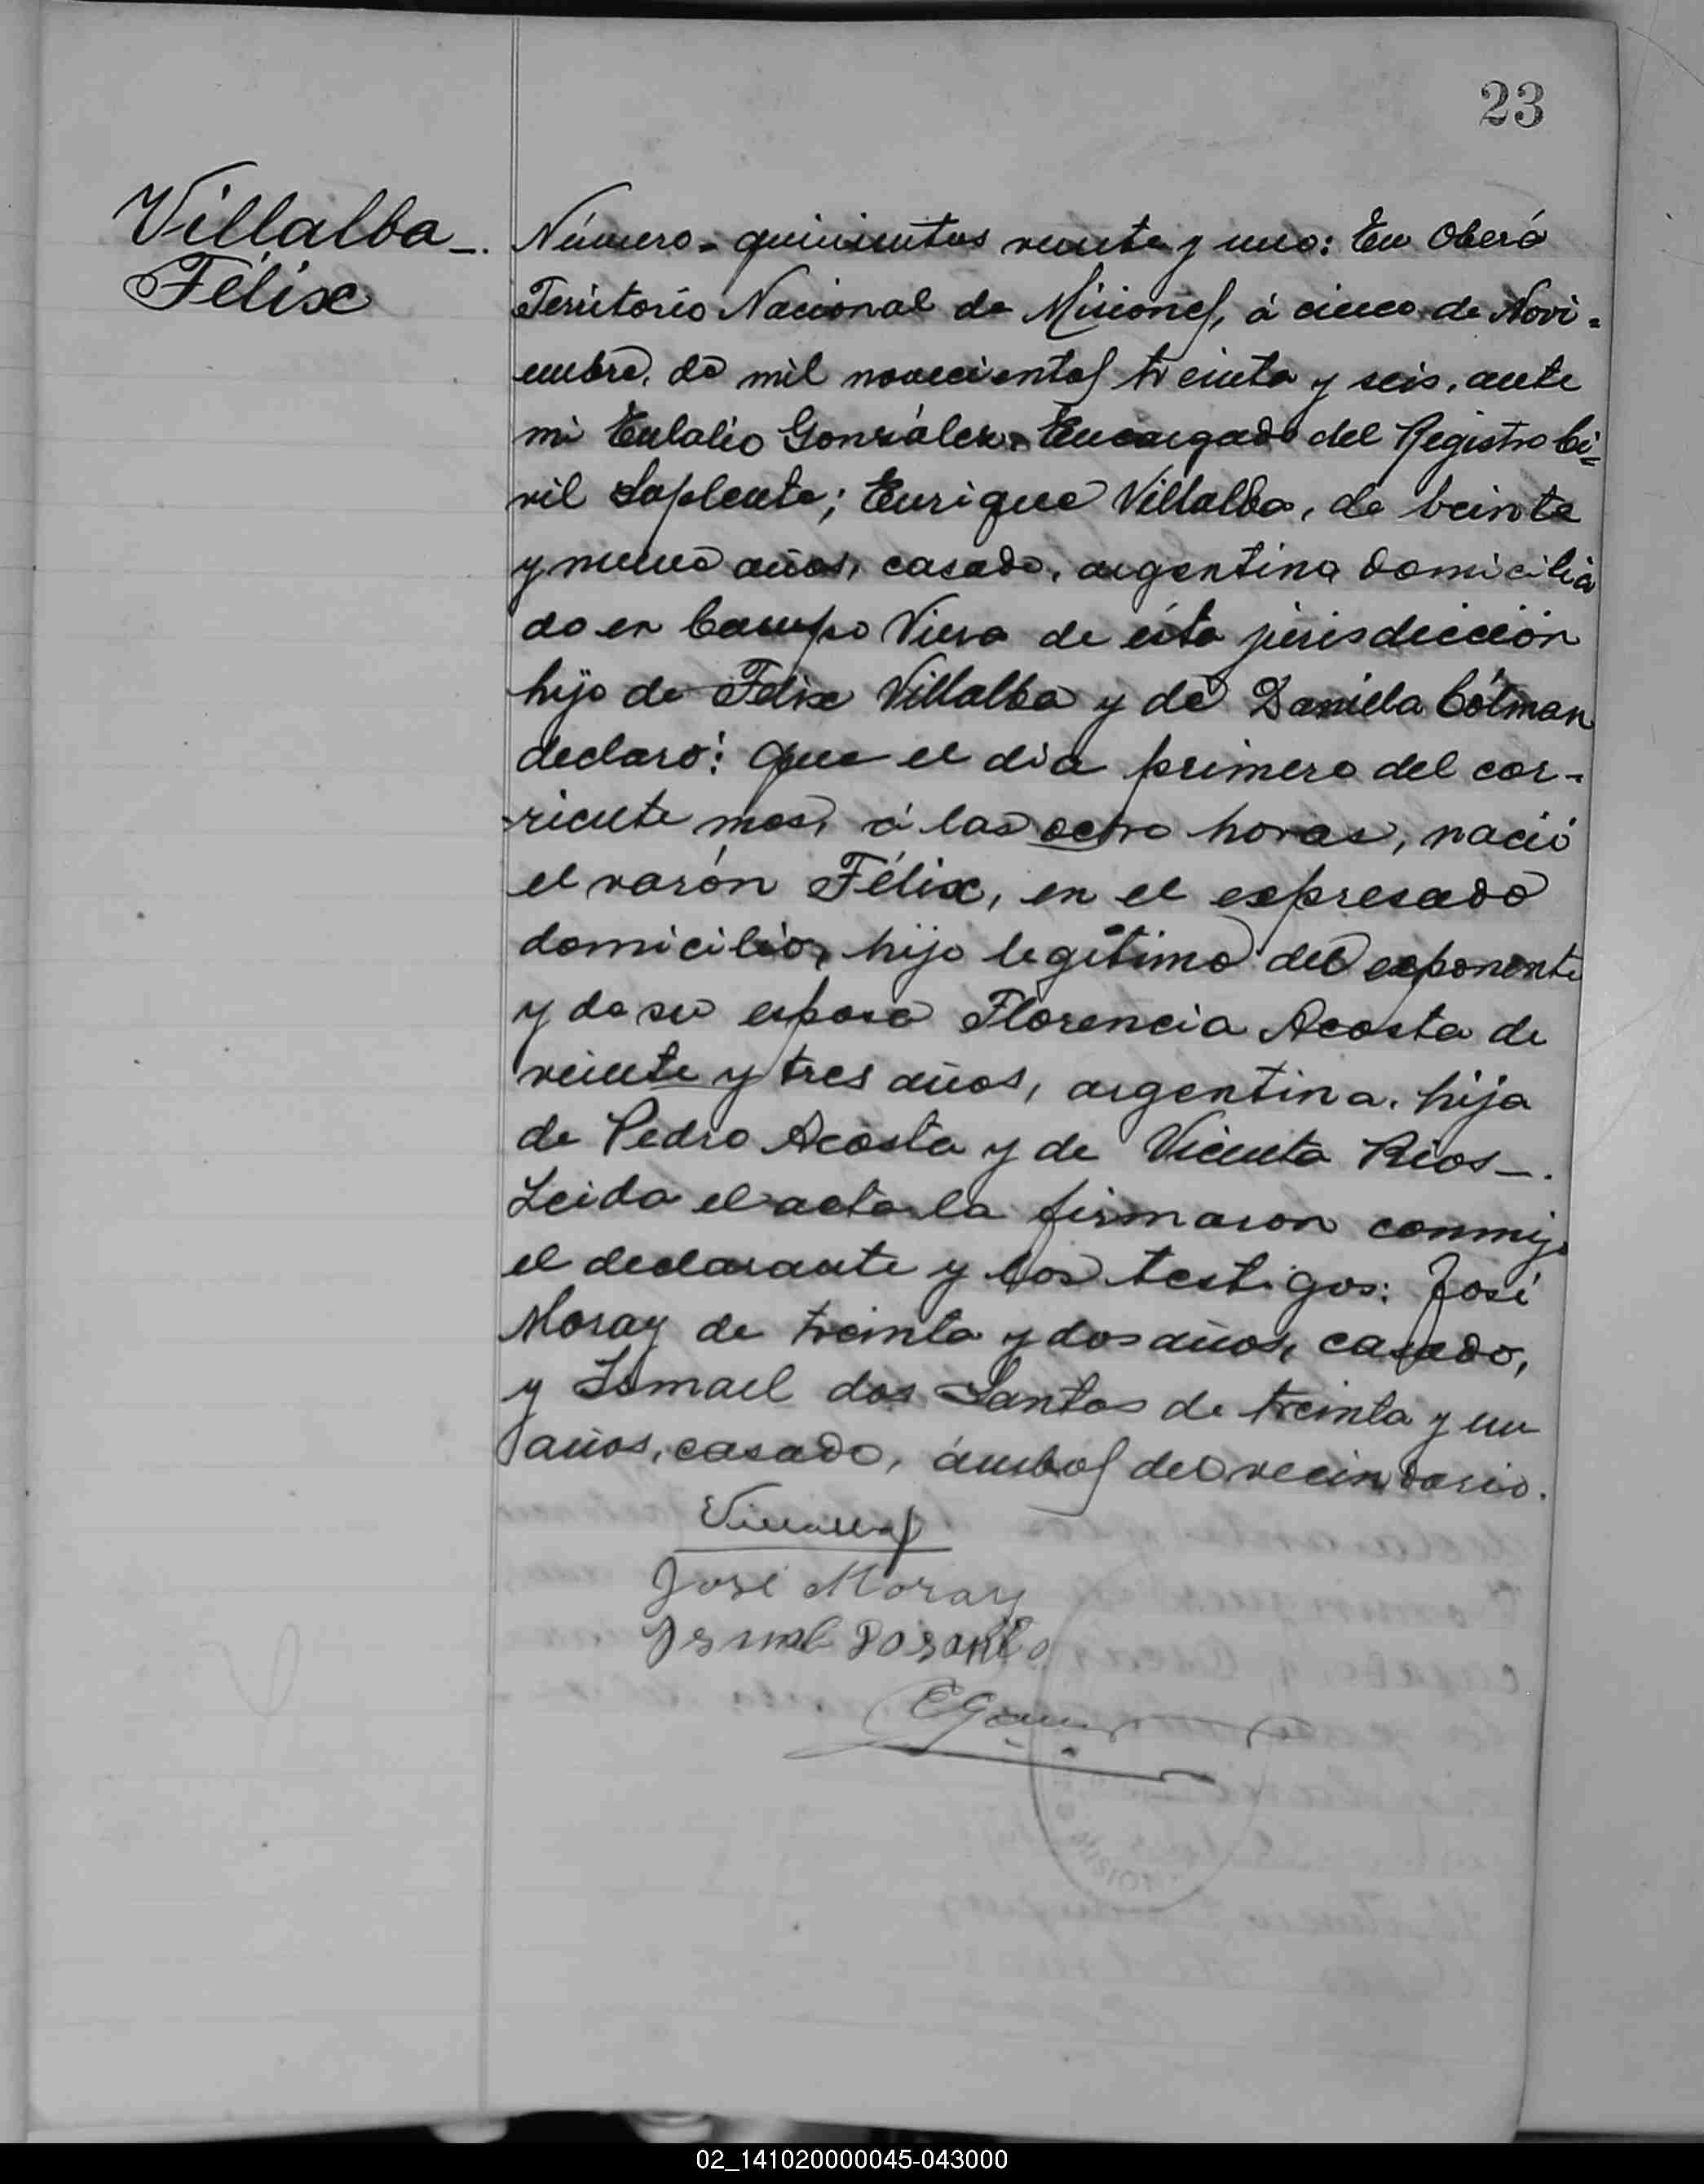 23
Villalba_.
Félix
Número = quinientos veinte y uno: En Oberá
Territorio Nacional de Misiones, á cinco de Novi=
embre, de mil novecientos treinta y seis, ante
mi Eulalio González, Encargado del Registro Ci=
vil Suplente; Enrique Villalba, de veinte
y nueve años, casado, argentino domicilia
do en Campo Viera de ésta jurisdicción
hijo de Felix Villalba y de Daniela Cólman
declaró: Que el dia primero del cor-
-riente mes, á las ocho horas, nació
el varón Félix, en el expresado
domicilio, hijo legítimo del exponente
y de su esposa Florencia Acosta de
veinte y tres años, argentina, hija
de Pedro Acosta y de Vicenta Rios_.
Leida el acta la firmaron conmigo
el declarante y los testigos: José
Moray de treinta y dos años, casado,
y Ismael dos Santos de treinta y un
años, casado, ámbos del vecindario.
José Moray
EGonz
02_141020000045-043000